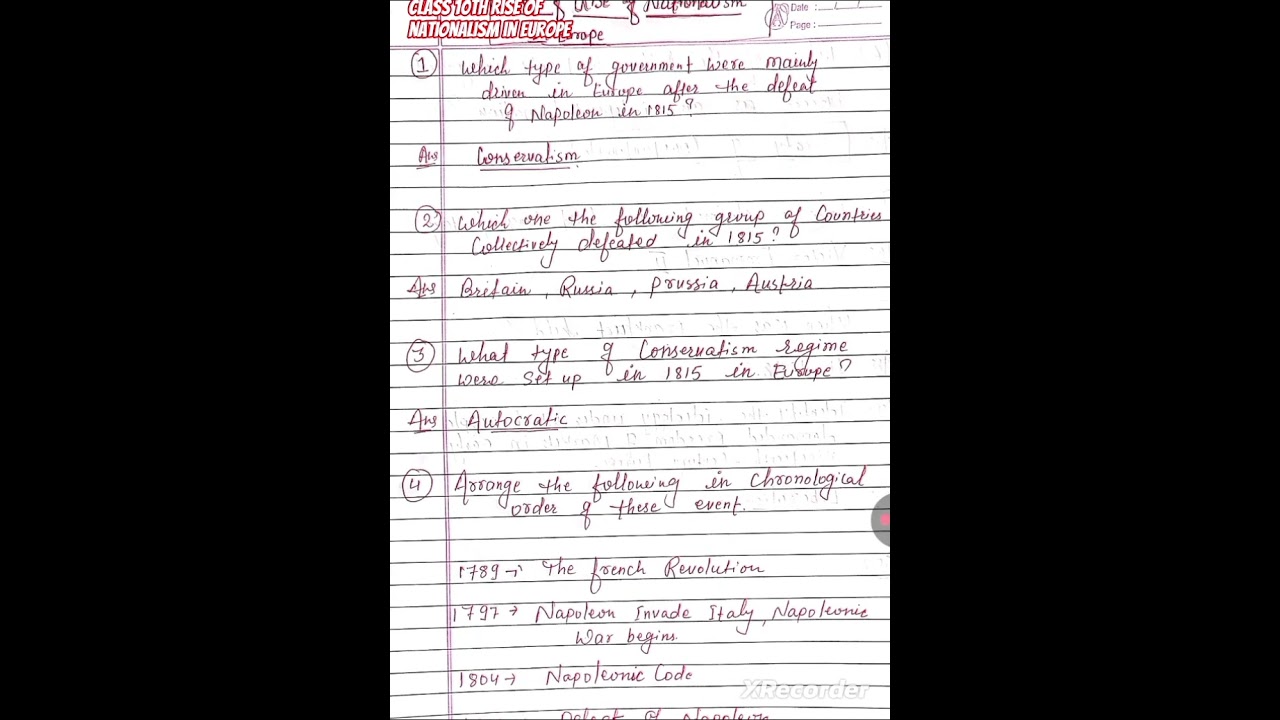 CLASS 10TH RISE OF
NATIONALISM IN EUROPE
of Rise of Nationalism
Europe
Date :
Page :
1 Which type of government were mainly
driven in Europe after the defeat
of Napoleon in 1815?
Ans Conservatism
2 Which one the following group of Countries
Collectively defeated in 1815?
Ans Britain, Russia, Prussia, Austria
3 What type of Conservatism regime
were set up in 1815 in Europe?
Ans Autocratic
4 Arrange the following in chronological
order of these event.
1789→ The french Revolution
1797→ Napoleon Invade Italy, Napoleonic
War begins.
1804→ Napoleonic Code
Defeat of Napoleon
XRecorder